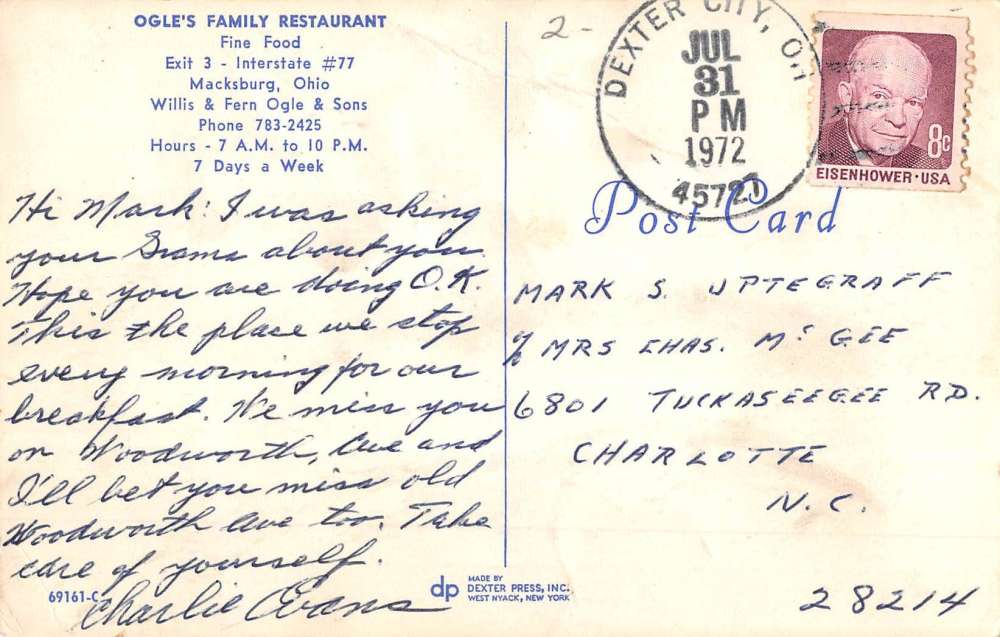 OGLE'S FAMILY RESTAURANT
Fine Food
Exit 3 - Interstate #77
Macksburg, Ohio
Willis & Fern Ogle & Sons
Phone 783-2425
Hours - 7 A.M. to 10 P.M.
7 Days a Week
Hi Mark: I was asking
your Grams about you.
Hope you are doing O.K.
This the place we stop
every morning for our
breakfast. We miss you
on Woodworth, Ave and
I'll bet you miss old
Woodworth Ave too. Take
care of yourself.
Charlie Evans
69161-C
2-
DEXTER CITY, OH
JUL
31
PM
1972
45727
8c
EISENHOWER·USA
Post Card
MARK S. UPTEGRAFF
% MRS CHAS. Mc GEE
6801 TUCKASEEGEE RD.
CHARLOTTE
N.C.
28214
dp MADE BY
DEXTER PRESS, INC.
WEST NYACK, NEW YORK